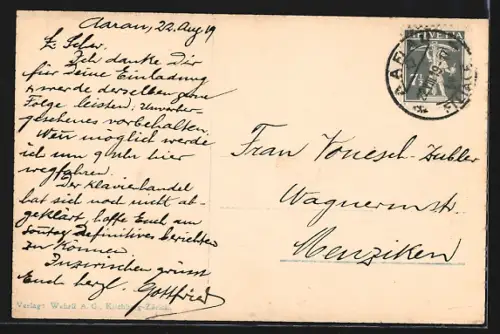 Aarau, 22. Aug 19
L. Schw.
Ich danke Dir
für Deine Einladung
& werde derselben gerne
Folge leisten: Unvorher-
gesehenes vorbehalten.
Wenn möglich werde
ich um 9 Uhr hier
wegfahren.
Der Klavierhandel
hat sich noch nicht ab-
geklärt, hoffe Euch am
Sonntag Definitives berichten
zu können
Inzwischen grüsst
Euch herzl. Gottfried
Verlag: Wehrli A. G., Kilchberg-Zürich
HELVETIA
7½
AARAU
FILIALE
Frau Vonesch-Zubler
Wagnermstr.
Menziken